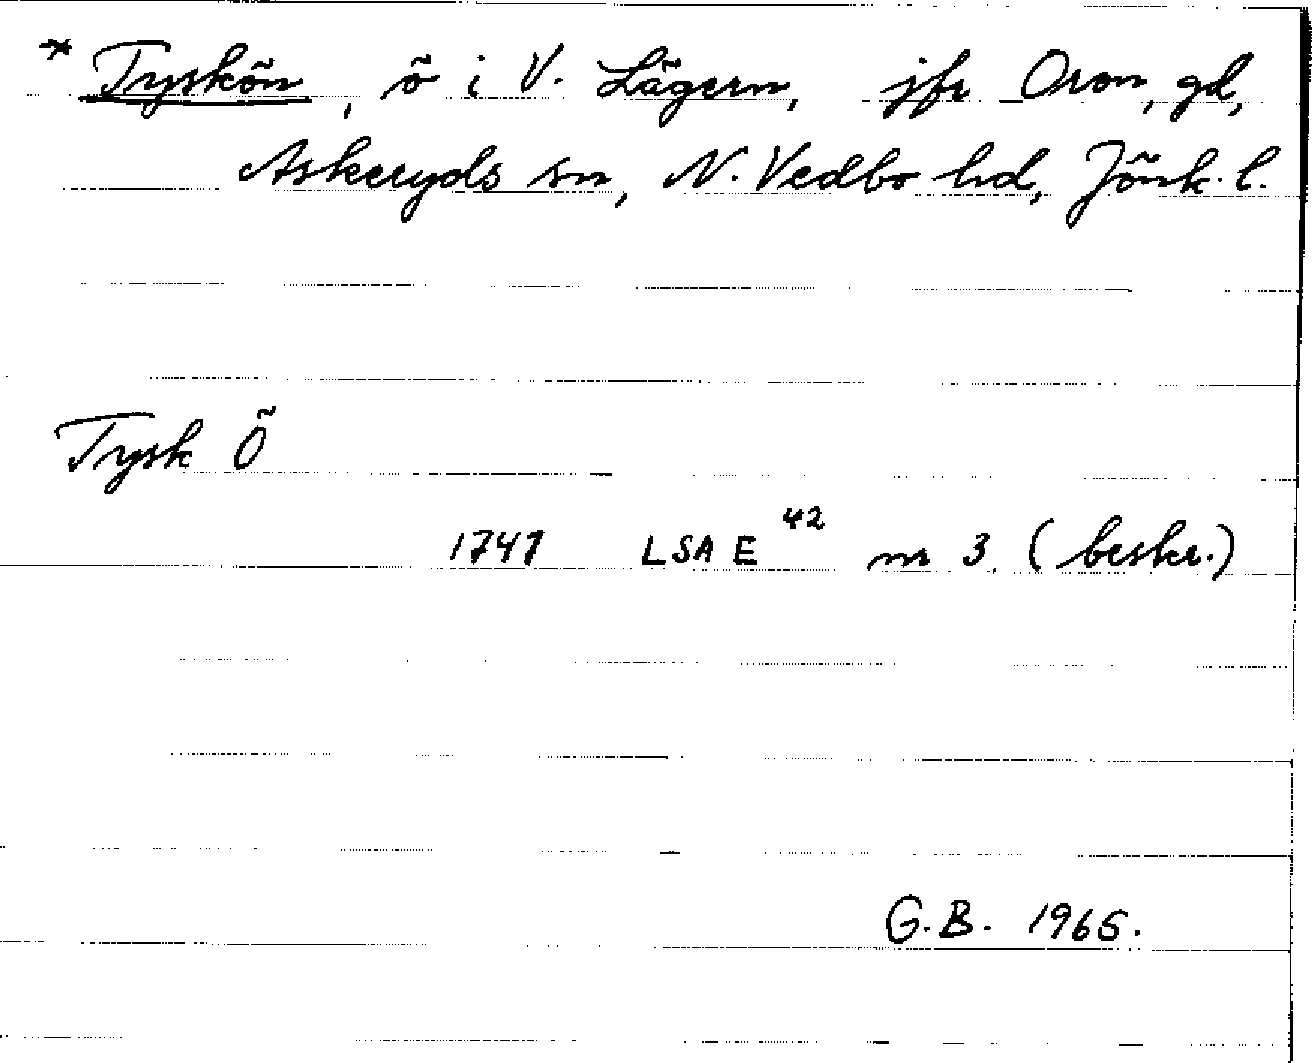 * Tyskön, ö i V. Lägern, jfr Oron, gd,
Askeryds sn, N. Vedbo hd, Jönk. l.
Tysk Ö
1747 LSA E 42 nr 3 (beskr.)
G.B. 1965.